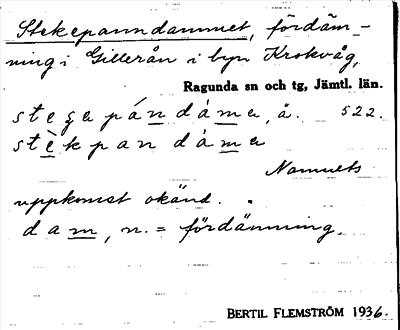 Stekepanndammet, fördäm-
ning i Gillerån i byn Krokvåg,
Ragunda sn och tg, Jämtl. län.
stegapándàma, å. 522.
stèkpandàma
Namnets
uppkomst okänd.
dam, n. = fördämning.
BERTIL FLEMSTRÖM 1936.